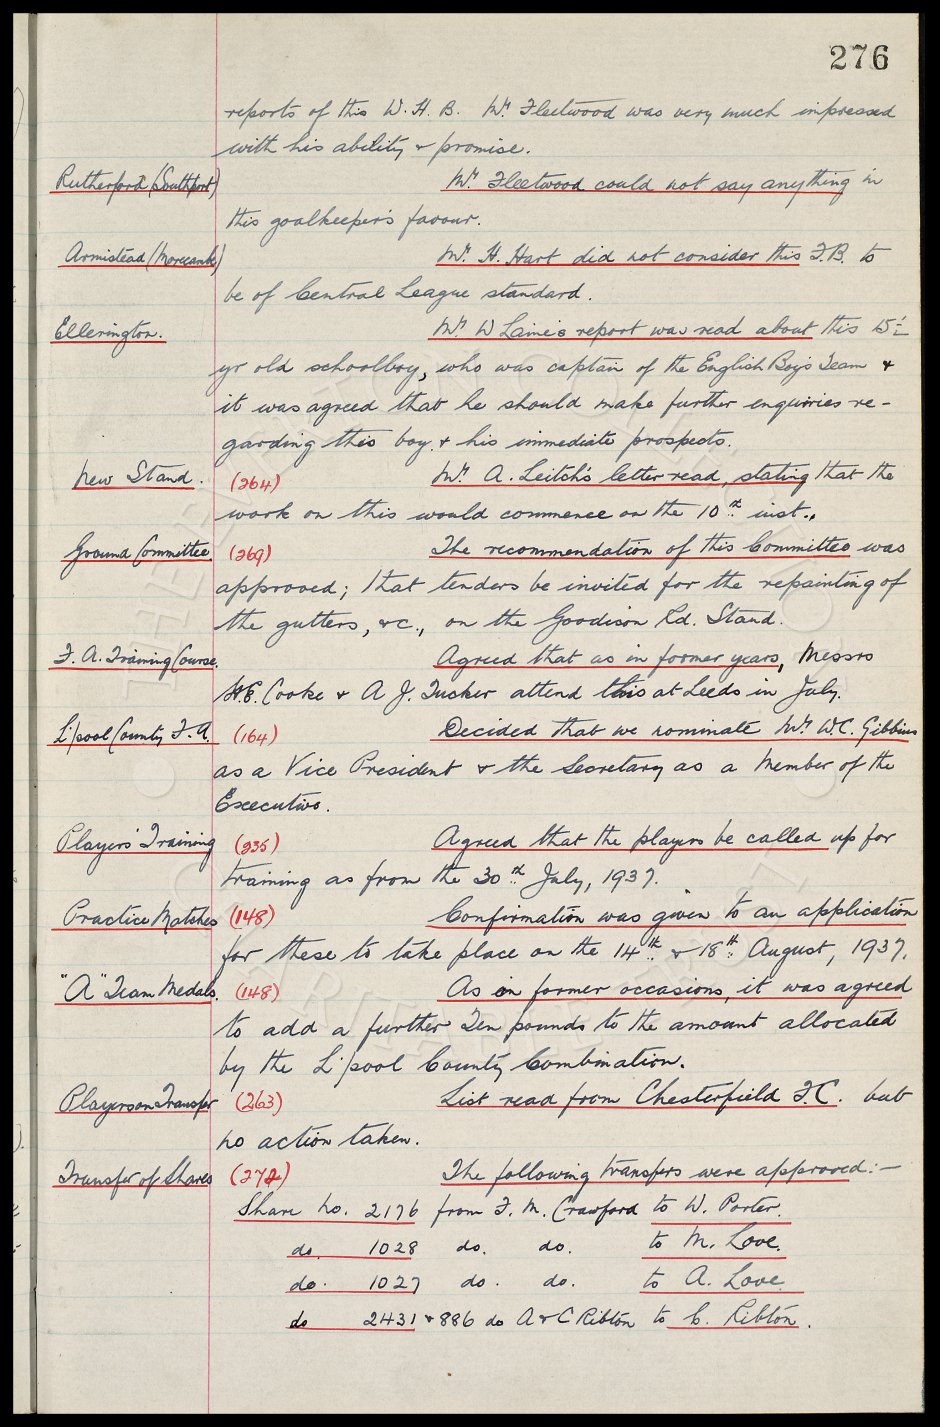 276
reports of this W. H. B. Mr Fleetwood was very much impressed
with his ability & promise.
Rutherford (Southport) Mr Fleetwood could not say anything in
this goalkeeper's favour.
Armistead (Morecambe) Mr H. Hart did not consider this F.B. to
be of Central League standard.
Ellerington. Mr W Laine's report was read about this 15½
yr old schoolboy, who was captain of the English Boys Team &
it was agreed that he should make further enquiries re-
garding this boy & his immediate prospects.
New Stand. (264) Mr A. Leitch's letter read, stating that the
work on this would commence on the 10th inst.,
Ground Committee (269) The recommendation of this Committee was
approved; that tenders be invited for the repainting of
the gutters, &c., on the Goodison Rd. Stand.
F. A. Training Course. Agreed that as in former years, Messrs
H.E. Cooke & A J. Tucker attend this at Leeds in July.
L'pool County F.A. (164) Decided that we nominate Mr W.C. Gibbins
as a Vice President & the Secretary as a Member of the
Executive.
Players' Training (235) Agreed that the players be called up for
training as from the 30th July, 1937.
Practice Matches (148) Confirmation was given to an application
for these to take place on the 14th & 18th August, 1937.
"A" Team Medals. (148) As on former occasions, it was agreed
to add a further Ten pounds to the amount allocated
by the L'pool County Combination.
Players on Transfer (263) List read from Chesterfield F.C. but
no action taken.
Transfer of Shares (272) The following transfers were approved:—
Share No. 2176 from F. M. Crawford to W. Porter.
do. 1028 do. do. to M. Love.
do. 1027 do. do. to A. Love
do 2431 & 886 do A & C Ribton to C. Ribton.